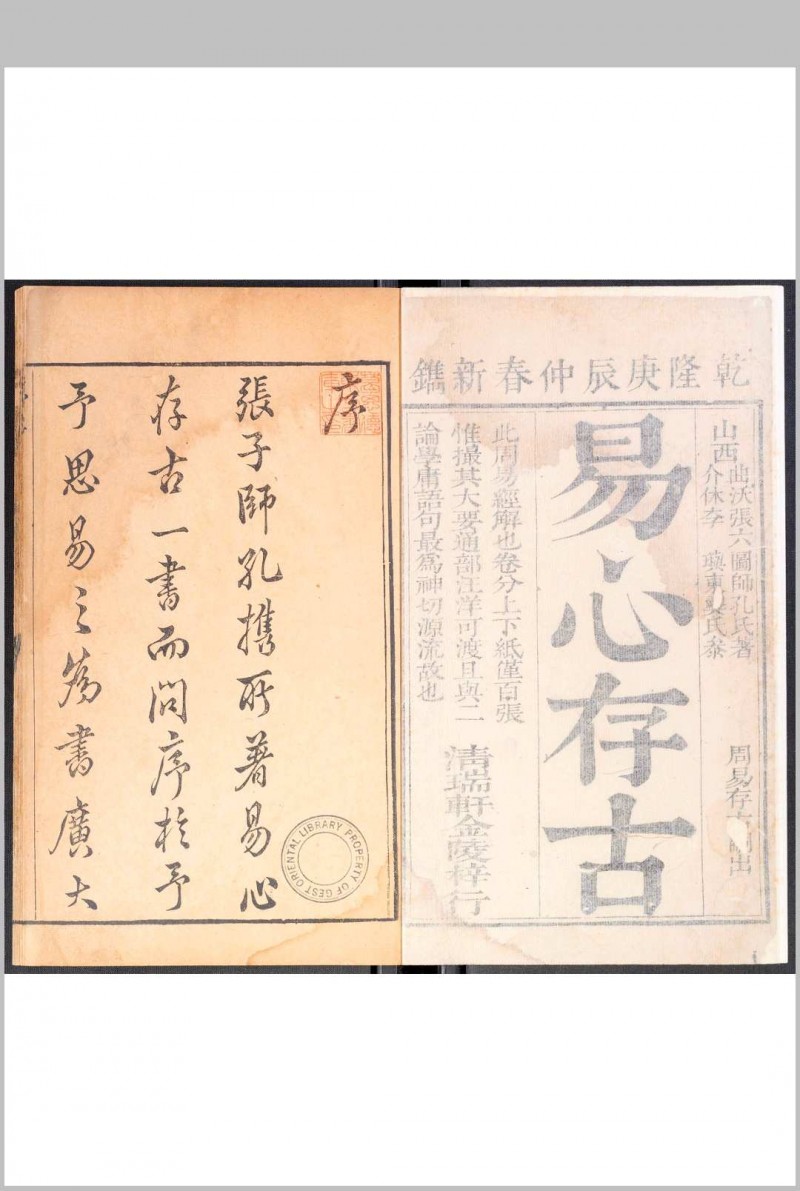 乾隆庚辰仲春新鐫
山西
曲沃張六圖師孔氏著
介休李
東
氏泰
周易存古
出
易心存古
此周易經解也卷分上下紙僅百張
惟撮其大要通部汪洋可渡且與二
論學庸語句最為神切源流故也
清瑞軒金陵梓行
序
張子師孔攜所著易心
存古一書而問序於予
予思易之為書廣大
GEST ORIENTAL LIBRARY PROPERTY OF